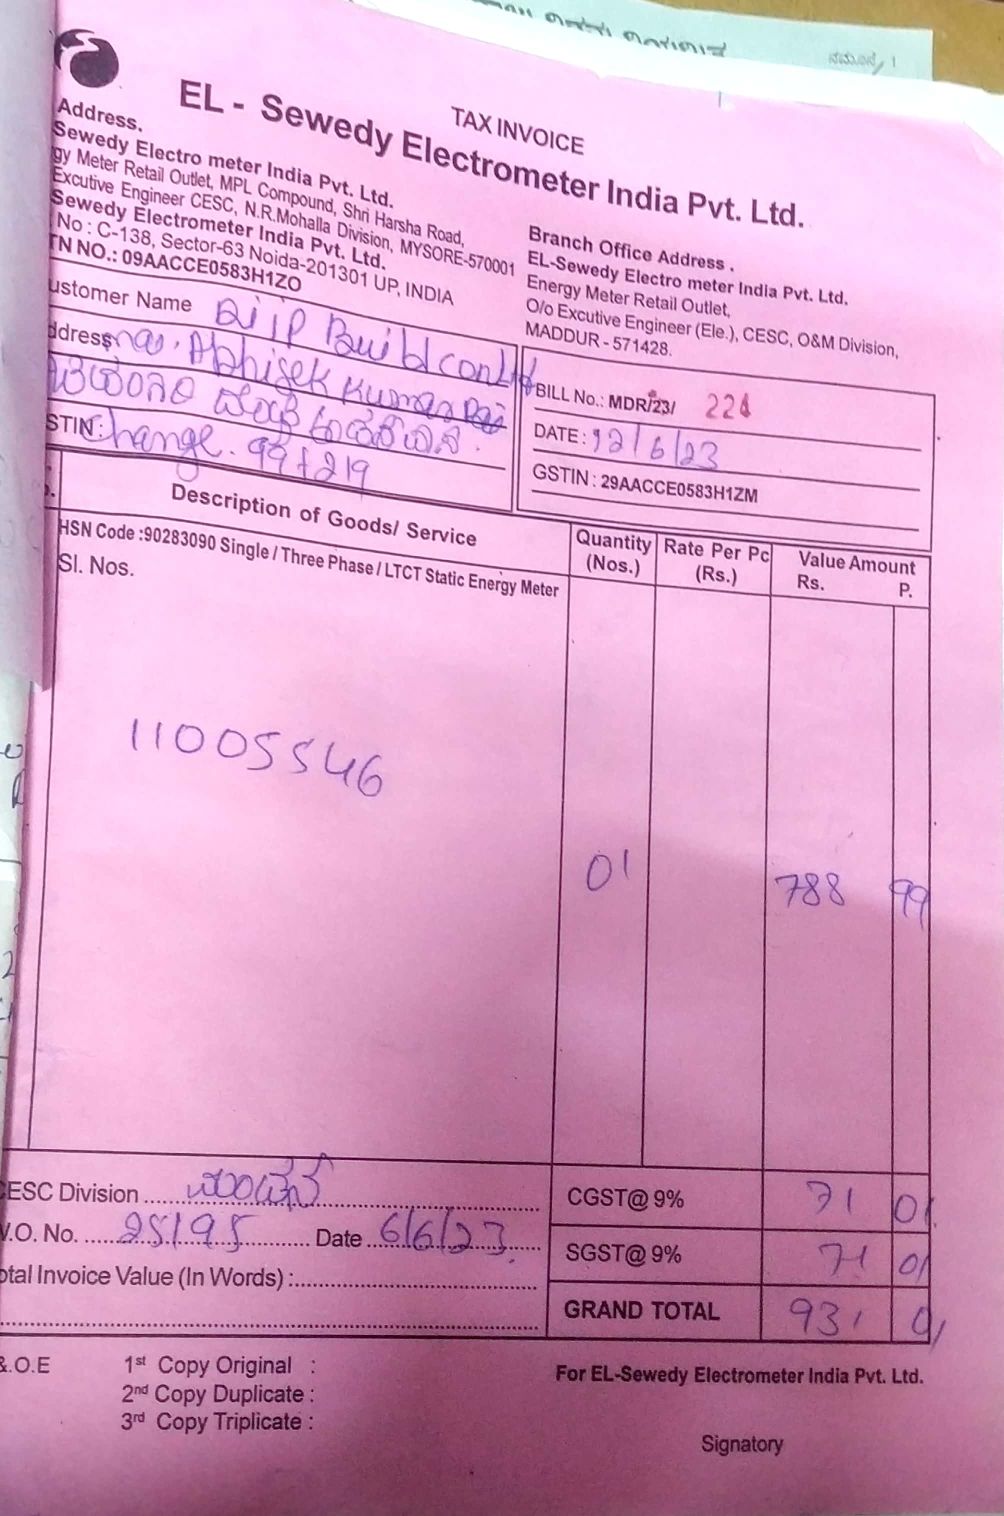 TAX INVOICE
EL - Sewedy Electrometer India Pvt. Ltd.
Address.
Sewedy Electro meter India Pvt. Ltd.
gy Meter Retail Outlet, MPL Compound, Shri Harsha Road,
Excutive Engineer CESC, N.R.Mohalla Division, MYSORE-570001
Sewedy Electrometer India Pvt. Ltd.
No : C-138, Sector-63 Noida-201301 UP, INDIA
TN NO.: 09AACCE0583H1ZO
Branch Office Address .
EL-Sewedy Electro meter India Pvt. Ltd.
Energy Meter Retail Outlet,
O/o Excutive Engineer (Ele.), CESC, O&M Division,
MADDUR - 571428.
ustomer Name Dilip Buildcon Ltd
ddress Abhisek Kumar
STIN: Change. 997219
BILL No.: MDR/23/ 221
DATE : 12/6/23
GSTIN : 29AACCE0583H1ZM
Description of Goods/ Service
Quantity (Nos.)
Rate Per Pc (Rs.)
Value Amount
Rs. P.
HSN Code :90283090 Single / Three Phase / LTCT Static Energy Meter
Sl. Nos.
11005546
01
788 99
CESC Division
W.O. No. 25195 Date 6/6/23
otal Invoice Value (In Words) :
CGST@ 9% 71 01
SGST@ 9% 71 01
GRAND TOTAL 931 01
&.O.E
1st Copy Original :
2nd Copy Duplicate :
3rd Copy Triplicate :
For EL-Sewedy Electrometer India Pvt. Ltd.
Signatory